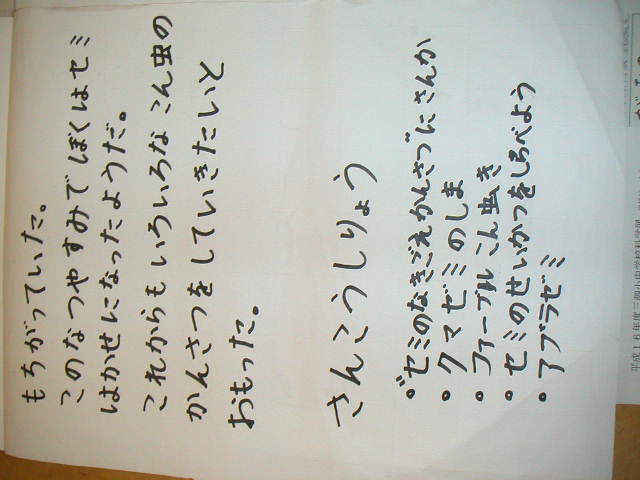 もちがっていた。
このなつやすみでぼくはセミ
はかせになったようだ。
これからもいろいろなこん虫の
かんさつをしていきたいと
おもった。
さんこうしりょう
・"セミのなきごえかんさつ"にさんか
・クマゼミのしま
・ファーブルこん虫き
・セミのせいかつをしらべよう
・アブラゼミ